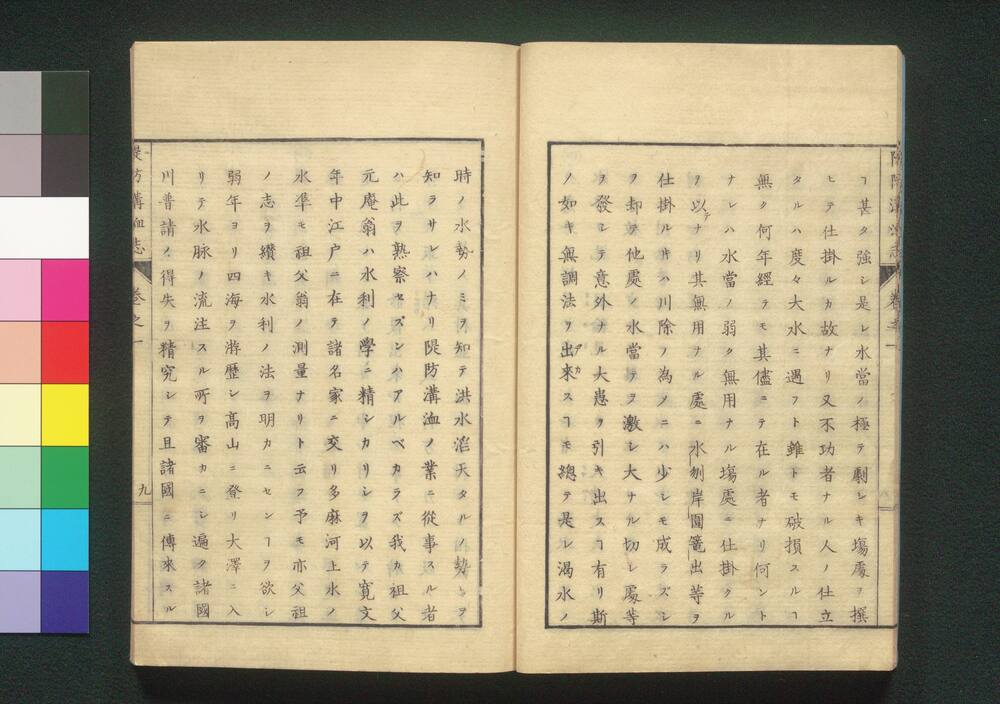 ヿ甚タ強シ是レ水當ノ極テ劇シキ塲處ヲ撰
ヒテ仕掛ルカ故ナリ又不功者ナル人ノ仕立
タルハ度々大水ニ遇フト雖トモ破損スルヿ
無ク何年經テモ其儘ニテ在ル者ナリ何ント
ナレハ水當ノ弱ク無用ナル塲處ニ仕掛クル
ヲ以テナリ其無用ナル處ニ水刎岸圍篭出等ヲ
仕掛ル片ハ川除ノ為メニハ少シモ成ラズシ
ヲ却テ他處ノ水當テヲ激シ大ナル切レ處等
ヲ發シテ意外ナル大患ヲ引キ出スヿ有リ斯
ノ如キ無調法ヲ出來スヿモ總テ是レ渇水ノ
時ノ水勢ノミヲ知テ洪水滔天タルノ勢ヒヲ
知ラサレハナリ隄防溝洫ノ業ニ從事スル者
ハ此ヲ熟察セズンハアルベカラズ我カ祖父
元庵翁ハ水利ノ學ニ精シカリシヲ以テ寛文
年中江户ニ在テ諸名家ニ交リ多麻河上水ノ
水凖モ祖父翁ノ測量ナリト云フ予モ亦父祖
ノ志ヲ纉キ水利ノ法ヲ明カニセンヿヲ欲シ
弱年ヨリ四海ヲ游歴シ髙山ニ登リ大澤ニ入
リテ水脉ノ流注スル所ヲ審カニシ遍ク諸國
川普請ノ得失ヲ精究シテ且諸國ニ傳來スル
隄防溝洫志
卷之一
九